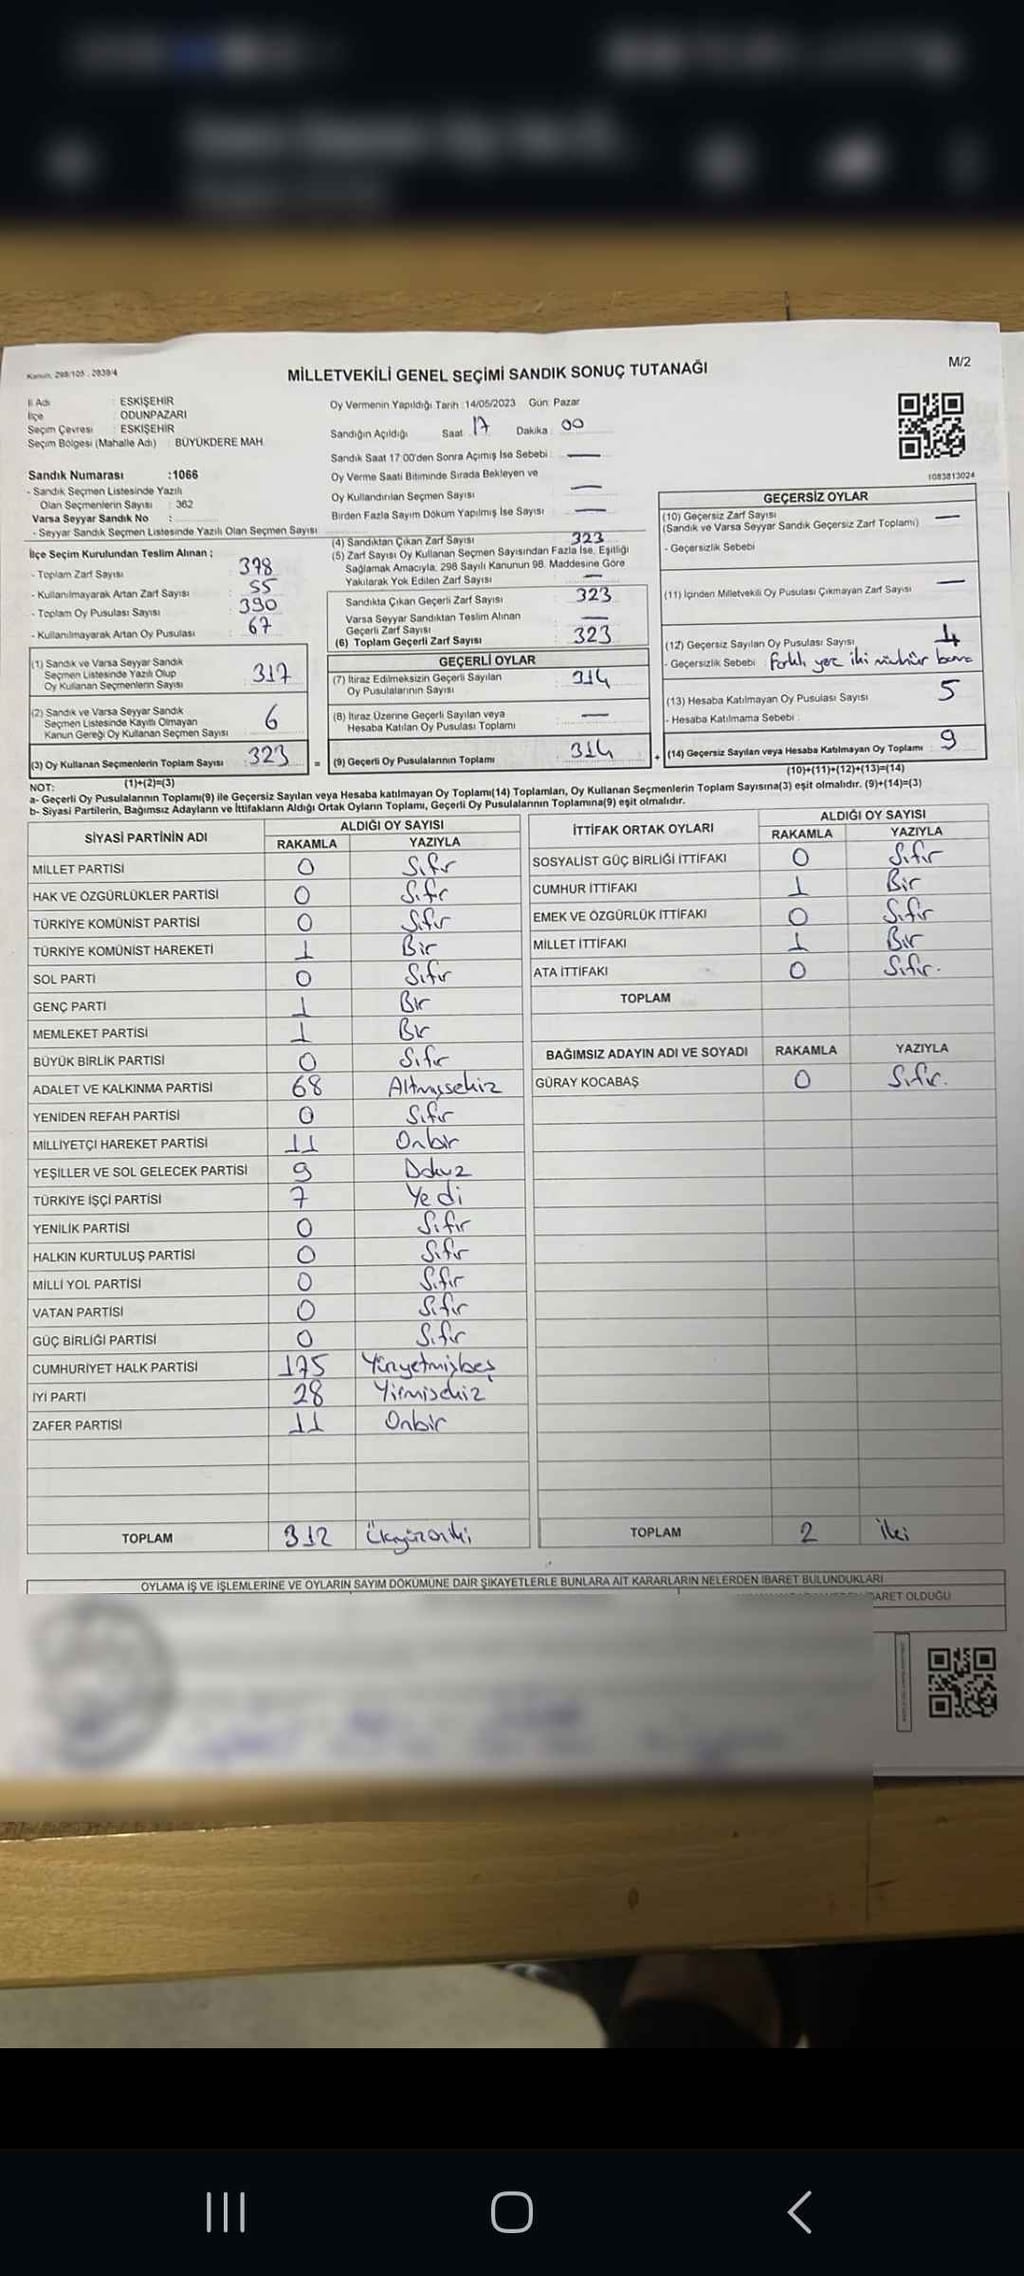 Kanun, 298/105 . 2839/4
MİLLETVEKİLİ GENEL SEÇİMİ SANDIK SONUÇ TUTANAĞI
M/2
İl Adı : ESKİŞEHİR
İlçe : ODUNPAZARI
Seçim Çevresi : ESKİŞEHİR
Seçim Bölgesi (Mahalle Adı) : BÜYÜKDERE MAH.
Sandık Numarası :1066
- Sandık Seçmen Listesinde Yazılı
Olan Seçmenlerin Sayısı : 362
Varsa Seyyar Sandık No :
- Seyyar Sandık Seçmen Listesinde Yazılı Olan Seçmen Sayısı
Oy Vermenin Yapıldığı Tarih :14/05/2023 Gün: Pazar
Sandığın Açıldığı Saat 17 Dakika 00
Sandık Saat 17:00'den Sonra Açımış İse Sebebi : —
Oy Verme Saati Bitiminde Sırada Bekleyen ve
Oy Kullandırılan Seçmen Sayısı —
Birden Fazla Sayım Döküm Yapılmış İse Sayısı —
1083813024
İlçe Seçim Kurulundan Teslim Alınan ;
- Toplam Zarf Sayısı : 378
- Kullanılmayarak Artan Zarf Sayısı : 55
- Toplam Oy Pusulası Sayısı : 390
- Kullanılmayarak Artan Oy Pusulası : 67
(1) Sandık ve Varsa Seyyar Sandık
Seçmen Listesinde Yazılı Olup
Oy Kullanan Seçmenlerin Sayısı : 317
(2) Sandık ve Varsa Seyyar Sandık
Seçmen Listesinde Kayıtlı Olmayan
Kanun Gereği Oy Kullanan Seçmen Sayısı : 6
(3) Oy Kullanan Seçmenlerin Toplam Sayısı : 323
(1)+(2)=(3)
(4) Sandıktan Çıkan Zarf Sayısı : 323
(5) Zarf Sayısı Oy Kullanan Seçmen Sayısından Fazla İse, Eşitliği
Sağlamak Amacıyla, 298 Sayılı Kanunun 98. Maddesine Göre
Yakılarak Yok Edilen Zarf Sayısı : —
Sandıkta Çıkan Geçerli Zarf Sayısı : 323
Varsa Seyyar Sandıktan Teslim Alınan
Geçerli Zarf Sayısı : —
(6) Toplam Geçerli Zarf Sayısı : 323
GEÇERLİ OYLAR
(7) İtiraz Edilmeksizin Geçerli Sayılan
Oy Pusulalarının Sayısı : 314
(8) İtiraz Üzerine Geçerli Sayılan veya
Hesaba Katılan Oy Pusulası Toplamı : —
= (9) Geçerli Oy Pusulalarının Toplamı : 314
GEÇERSİZ OYLAR
(10) Geçersiz Zarf Sayısı : —
(Sandık ve Varsa Seyyar Sandık Geçersiz Zarf Toplamı)
- Geçersizlik Sebebi :
(11) İçinden Milletvekili Oy Pusulası Çıkmayan Zarf Sayısı : —
(12) Geçersiz Sayılan Oy Pusulası Sayısı : 4
- Geçersizlik Sebebi : Farklı yere iki mühür
(13) Hesaba Katılmayan Oy Pusulası Sayısı : 5
- Hesaba Katılmama Sebebi :
+ (14) Geçersiz Sayılan veya Hesaba Katılmayan Oy Toplamı : 9
(10)+(11)+(12)+(13)=(14)
NOT:
a- Geçerli Oy Pusulalarının Toplamı(9) ile Geçersiz Sayılan veya Hesaba katılmayan Oy Toplamı(14) Toplamları, Oy Kullanan Seçmenlerin Toplam Sayısına(3) eşit olmalıdır. (9)+(14)=(3)
b- Siyasi Partilerin, Bağımsız Adayların ve İttifakların Aldığı Ortak Oyların Toplamı, Geçerli Oy Pusulalarının Toplamına(9) eşit olmalıdır.
SİYASİ PARTİNİN ADI ALDIĞI OY SAYISI
RAKAMLA YAZIYLA
MİLLET PARTİSİ 0 Sıfır
HAK VE ÖZGÜRLÜKLER PARTİSİ 0 Sıfır
TÜRKİYE KOMÜNİST PARTİSİ 0 Sıfır
TÜRKİYE KOMÜNİST HAREKETİ 1 Bir
SOL PARTİ 0 Sıfır
GENÇ PARTİ 1 Bir
MEMLEKET PARTİSİ 1 Bir
BÜYÜK BİRLİK PARTİSİ 0 Sıfır
ADALET VE KALKINMA PARTİSİ 68 Altmışsekiz
YENİDEN REFAH PARTİSİ 0 Sıfır
MİLLİYETÇİ HAREKET PARTİSİ 11 Onbir
YEŞİLLER VE SOL GELECEK PARTİSİ 9 Dokuz
TÜRKİYE İŞÇİ PARTİSİ 7 Yedi
YENİLİK PARTİSİ 0 Sıfır
HALKIN KURTULUŞ PARTİSİ 0 Sıfır
MİLLİ YOL PARTİSİ 0 Sıfır
VATAN PARTİSİ 0 Sıfır
GÜÇ BİRLİĞİ PARTİSİ 0 Sıfır
CUMHURİYET HALK PARTİSİ 175 Yüzyetmişbeş
İYİ PARTİ 28 Yirmisekiz
ZAFER PARTİSİ 11 Onbir
TOPLAM 312 Üçyüzoniki
İTTİFAK ORTAK OYLARI ALDIĞI OY SAYISI
RAKAMLA YAZIYLA
SOSYALİST GÜÇ BİRLİĞİ İTTİFAKI 0 Sıfır
CUMHUR İTTİFAKI 1 Bir
EMEK VE ÖZGÜRLÜK İTTİFAKI 0 Sıfır
MİLLET İTTİFAKI 1 Bir
ATA İTTİFAKI 0 Sıfır.
TOPLAM
BAĞIMSIZ ADAYIN ADI VE SOYADI RAKAMLA YAZIYLA
GÜRAY KOCABAŞ 0 Sıfır.
TOPLAM 2 İki
OYLAMA İŞ VE İŞLEMLERİNE VE OYLARIN SAYIM DÖKÜMÜNE DAİR ŞİKAYETLERLE BUNLARA AİT KARARLARIN NELERDEN İBARET BULUNDUKLARI
OLDUĞU